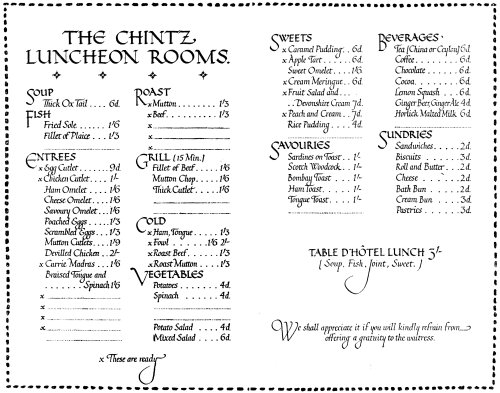 THE CHINTZ
LUNCHEON ROOMS.
SOUP
Thick Ox Tail .... 6d.
FISH
Fried Sole ..... 1/6
Fillet of Plaice ... 1/3
ENTREES
x Egg Cutlet ..... 9d
x Chicken Cutlet .. 1/-
Ham Omelet .... 1/6
Cheese Omelet ... 1/6
Savoury Omelet ... 1/6
Poached Eggs .... 1/3
Scrambled Eggs .. 1/3
Mutton Cutlets ... 1/9
Devilled Chicken .. 2/-
x Currie Madras .. 1/6
Braised Tongue and
Spinach 1/6
x
x
x
x
ROAST
x Mutton ........ 1/3
x Beef .......... 1/3
x
x
x
GRILL (15 Min.)
Fillet of Beef .... 1/6
Mutton Chop .... 1/6
Thick Cutlet ..... 1/6
COLD
x Ham, Tongue .... 1/3
x Fowl ..... 1/6 2/-
x Roast Beef ..... 1/3
x Roast Mutton ... 1/3
VEGETABLES
Potatoes ....... 4d.
Spinach ....... 4d.
Potato Salad .... 4d
Mixed Salad .... 6d.
x These are ready
SWEETS
x Caramel Pudding .. 6d.
x Apple Tart ..... 6d.
Sweet Omelet .... 1/6
x Cream Meringue .. 6d.
x Fruit Salad and ..
.. Devonshire Cream 7d.
x Peach and Cream .. 7d.
Rice Pudding .... 4d.
SAVOURIES
Sardines on Toast .. 1/-
Scotch Woodcock .. 1/-
Bombay Toast ... 1/-
Ham Toast ..... 1/-
Tongue Toast .... 1/-
BEVERAGES
Tea [China or Ceylon] 6d
Coffee ......... 6d.
Chocolate ...... 6d
Cocoa ......... 6d.
Lemon Squash ... 6d.
Ginger Beer, Ginger Ale 4d
Horlick Malted Milk 6d.
SUNDRIES
Sandwiches ...... 2d.
Biscuits ....... 3d.
Roll and Butter ... 2d.
Cheese ........ 2d.
Bath Bun ...... 2d.
Cream Bun ..... 3d.
Pastries ....... 3d.
TABLE D'HÔTEL LUNCH 3/-
[ Soup, Fish, Joint, Sweet. ]
We shall appreciate it if you will kindly refrain from
offering a gratuity to the waitress.